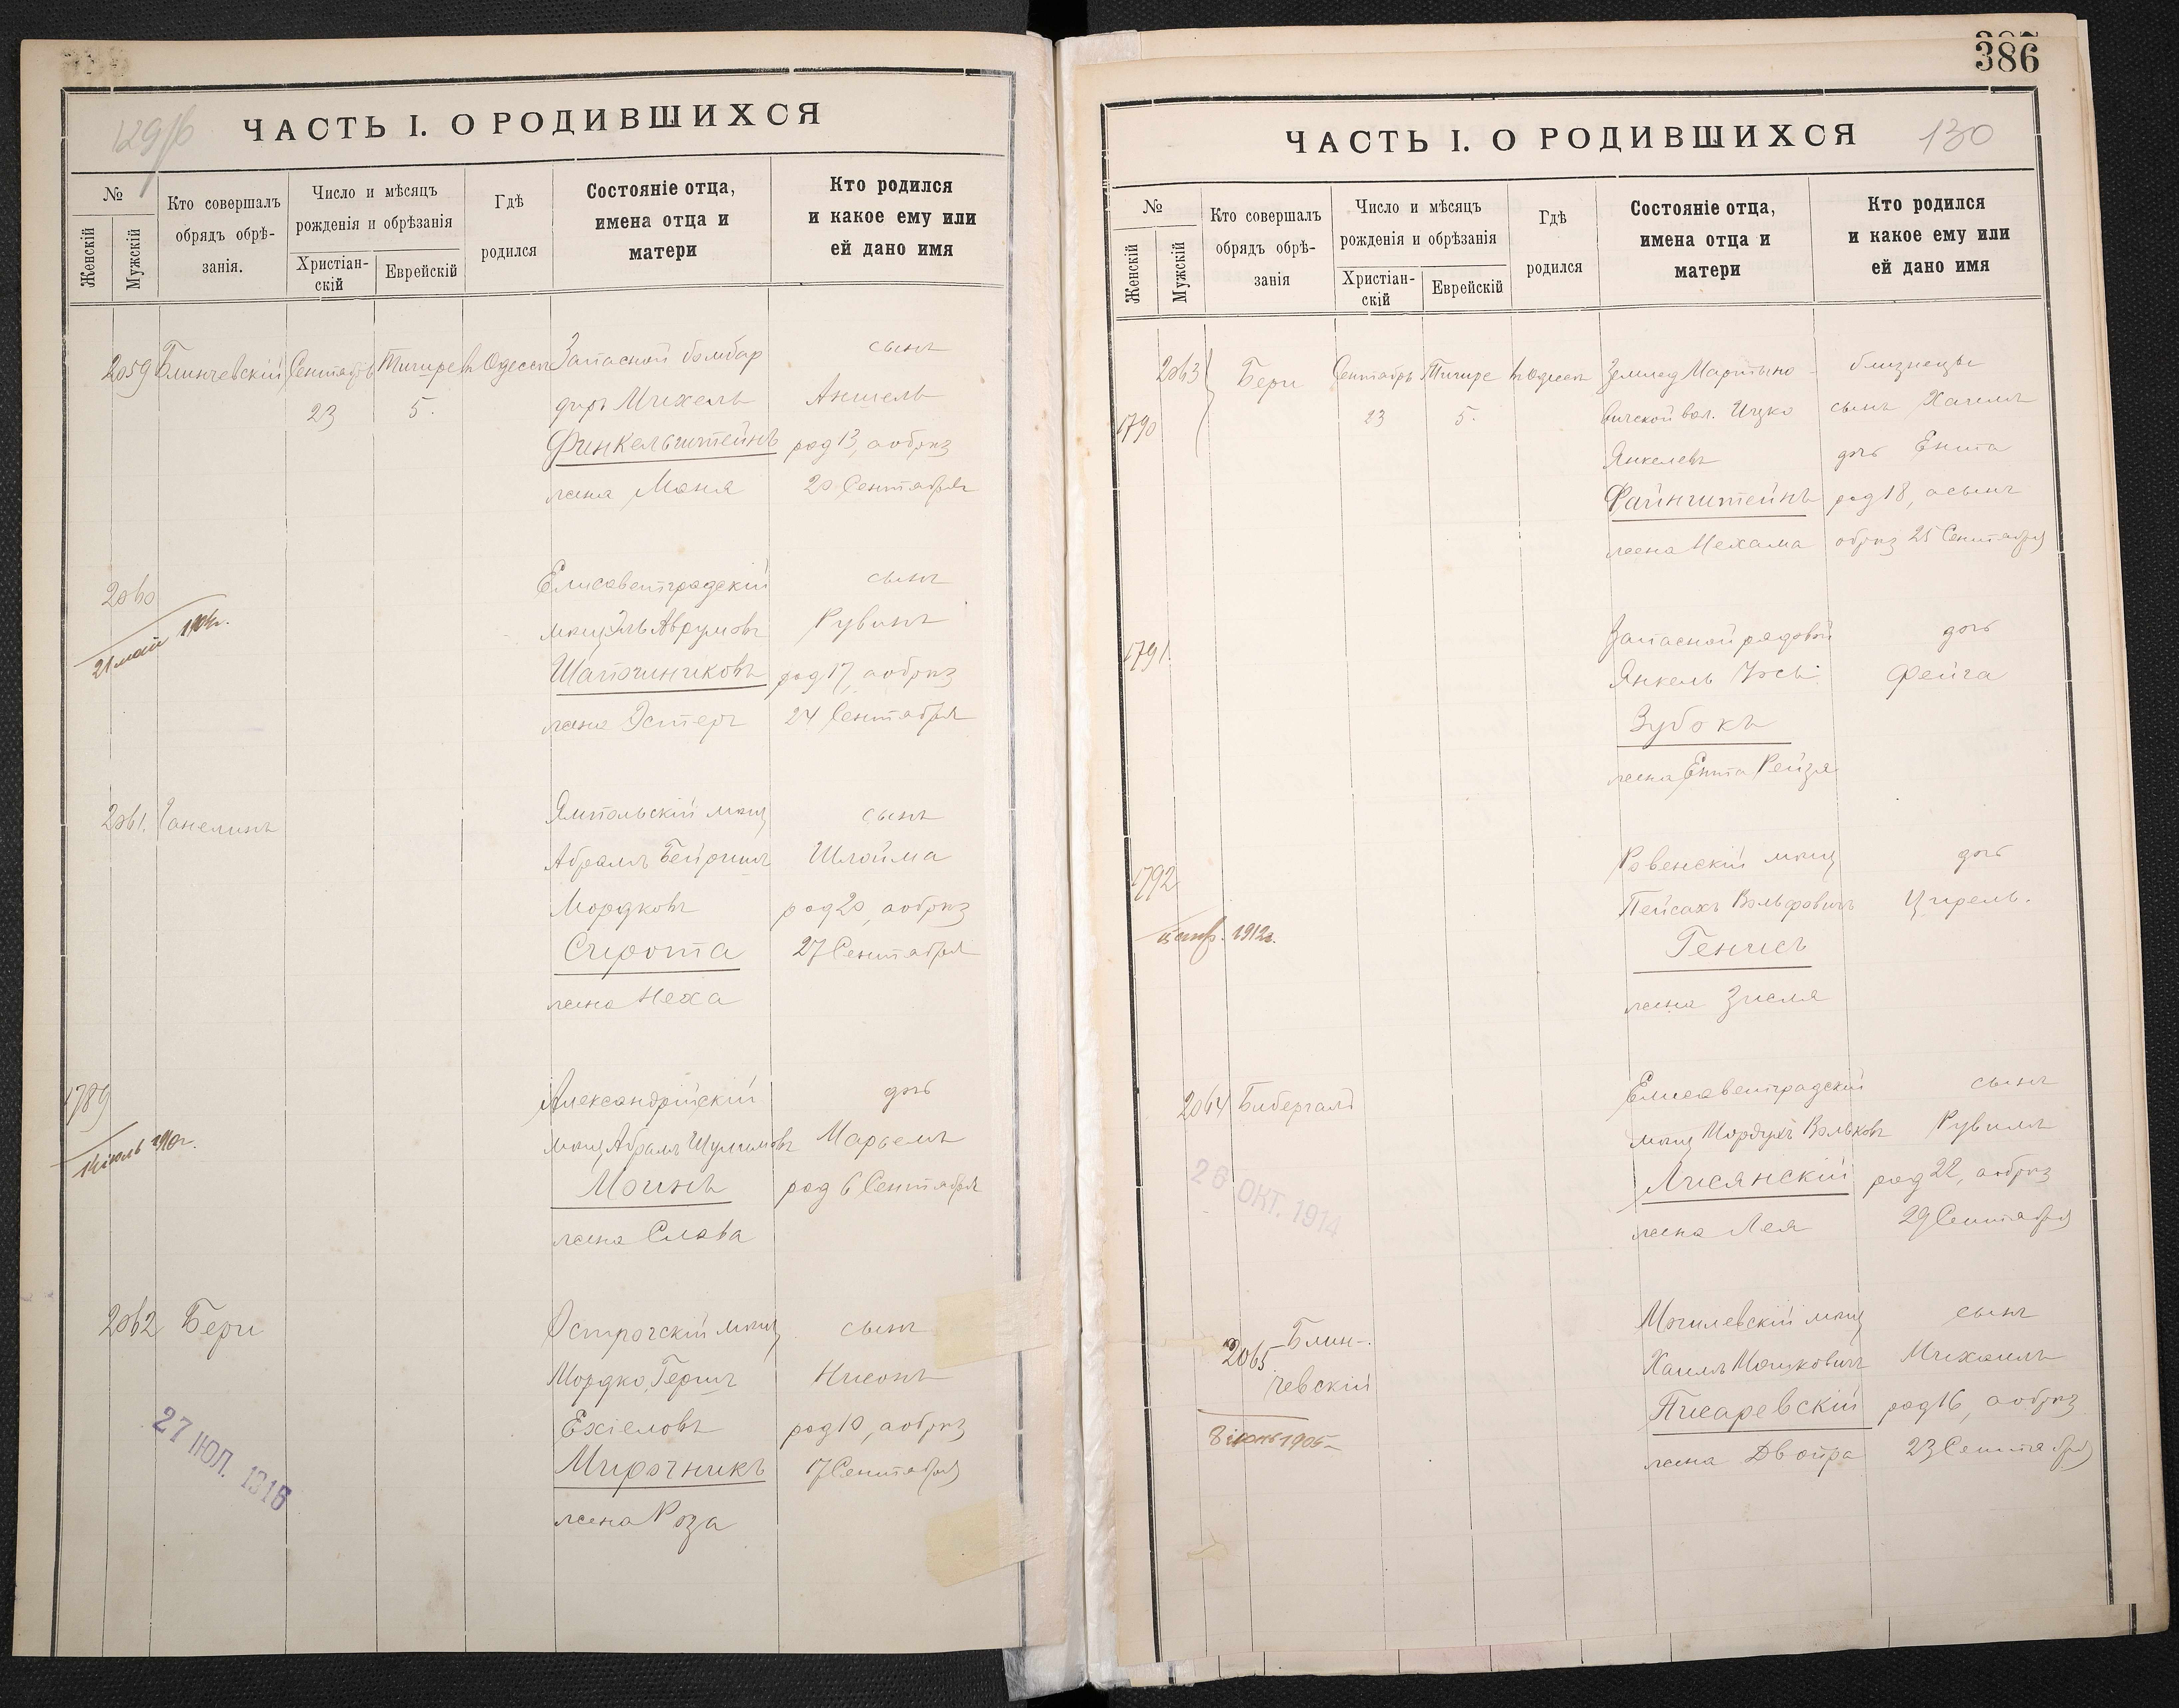 129/б
ЧАСТЬ I. О РОДИВШИХСЯ
№
Женскій
Мужскій
Кто совершалъ
обрядъ обрѣ-
занія.
Число и мѣсяцъ
рожденія и обрѣзанія
Христіан-
скій
Еврейскій
Гдѣ
родился
Состояніе отца,
имена отца и
матери
Кто родился
и какое ему или
ей дано имя
2059 Блинчевскій Сентябрь Тишре в Одессе Запасной бомбар сынъ
23 5. диръ Михель Аншель
Финкельштейнъ род 13, а обрѣз
жена Маня 20 Сентября
2060 Елисаветградскій сынъ
21 май
мѣщ Эль Аврумовъ Рувинъ
Шапочниковъ род 17, а обрѣз
жена Эстеръ 24 Сентября
2061. Ганелинъ Ямпольскій мѣщ сынъ
Абрамъ Бейришъ Шлойма
Мордковъ род 20, а обрѣз
Сирота 27 Сентября
жена Неха
1789 Александрійскій дочь
мѣщ Абрамъ Шулимовъ Марьемъ
Моинъ род 6 Сентября
жена Слава
2062 Бери Острогскій мѣщ сынъ
Мордко Гершъ Нисонъ
Ехіеловъ род 10, а обрѣз
Мирочникъ 17 Сентября
жена Роза
27 ІЮЛ. 1916
386
ЧАСТЬ I. О РОДИВШИХСЯ
130
№
Женскій
Мужскій
Кто совершалъ
обрядъ обрѣ-
занія
Число и мѣсяцъ
рожденія и обрѣзанія
Христіан-
скій
Еврейскій
Гдѣ
родился
Состояніе отца,
имена отца и
матери
Кто родился
и какое ему или
ей дано имя
2063 Бери Сентябрь Тишре в Одессе Землед Мартыно- близнецы
1790 23 5. вичской вол. Ицко сынъ Хаимъ
Янкелевъ дочь Ента
Файнштейнъ род 18, а сынъ
жена Нехама обрѣз 25 Сентября
1791. Запасной рядовой дочь
Янкель Иось Фейга
Зубокъ
жена Ента Рейзя
1792 Ровенскій мѣщ дочь
Пейсахъ Вольфовичъ Ципрель.
1912г.
Генисъ
жена Зисля
2064 Бибергалъ Елисаветградскій сынъ
мѣщ Мордухъ Вольковъ Рувимъ
Лисянскій род 22, а обрѣз
жена Лея 29 Сентября
26 ОКТ. 1914
2065 Блин- Могилевскій мѣщ сынъ
чевскій Хаимъ Мошковичъ Михаилъ
Писаревскій род 16, а обрѣз
жена Двойра 23 Сентября